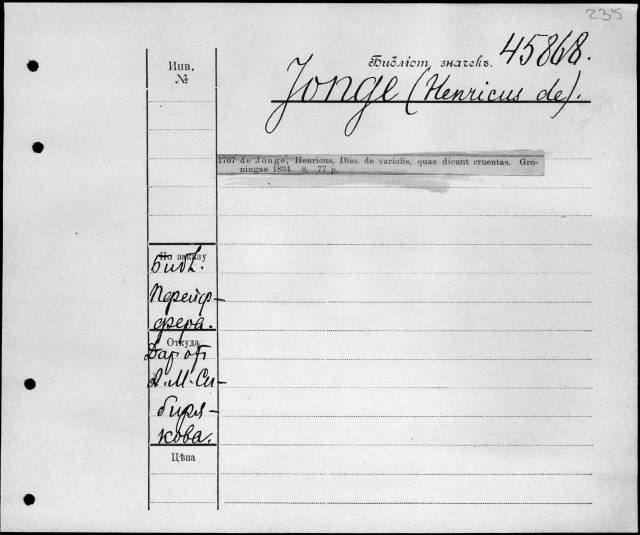 235
Инв.
№
Библіот. значекъ. 45868.
Jonge (Henricus de).
1767 de Jonge, Henricus, Diss. de variolis, quas dicunt cruentas. Gro-
ningae 1834. 8. 77 p.
По заказу
Библ.
Пфейф-
фера.
Откуда
Даръ отъ
А. М. Си-
биря-
кова.
Цѣна